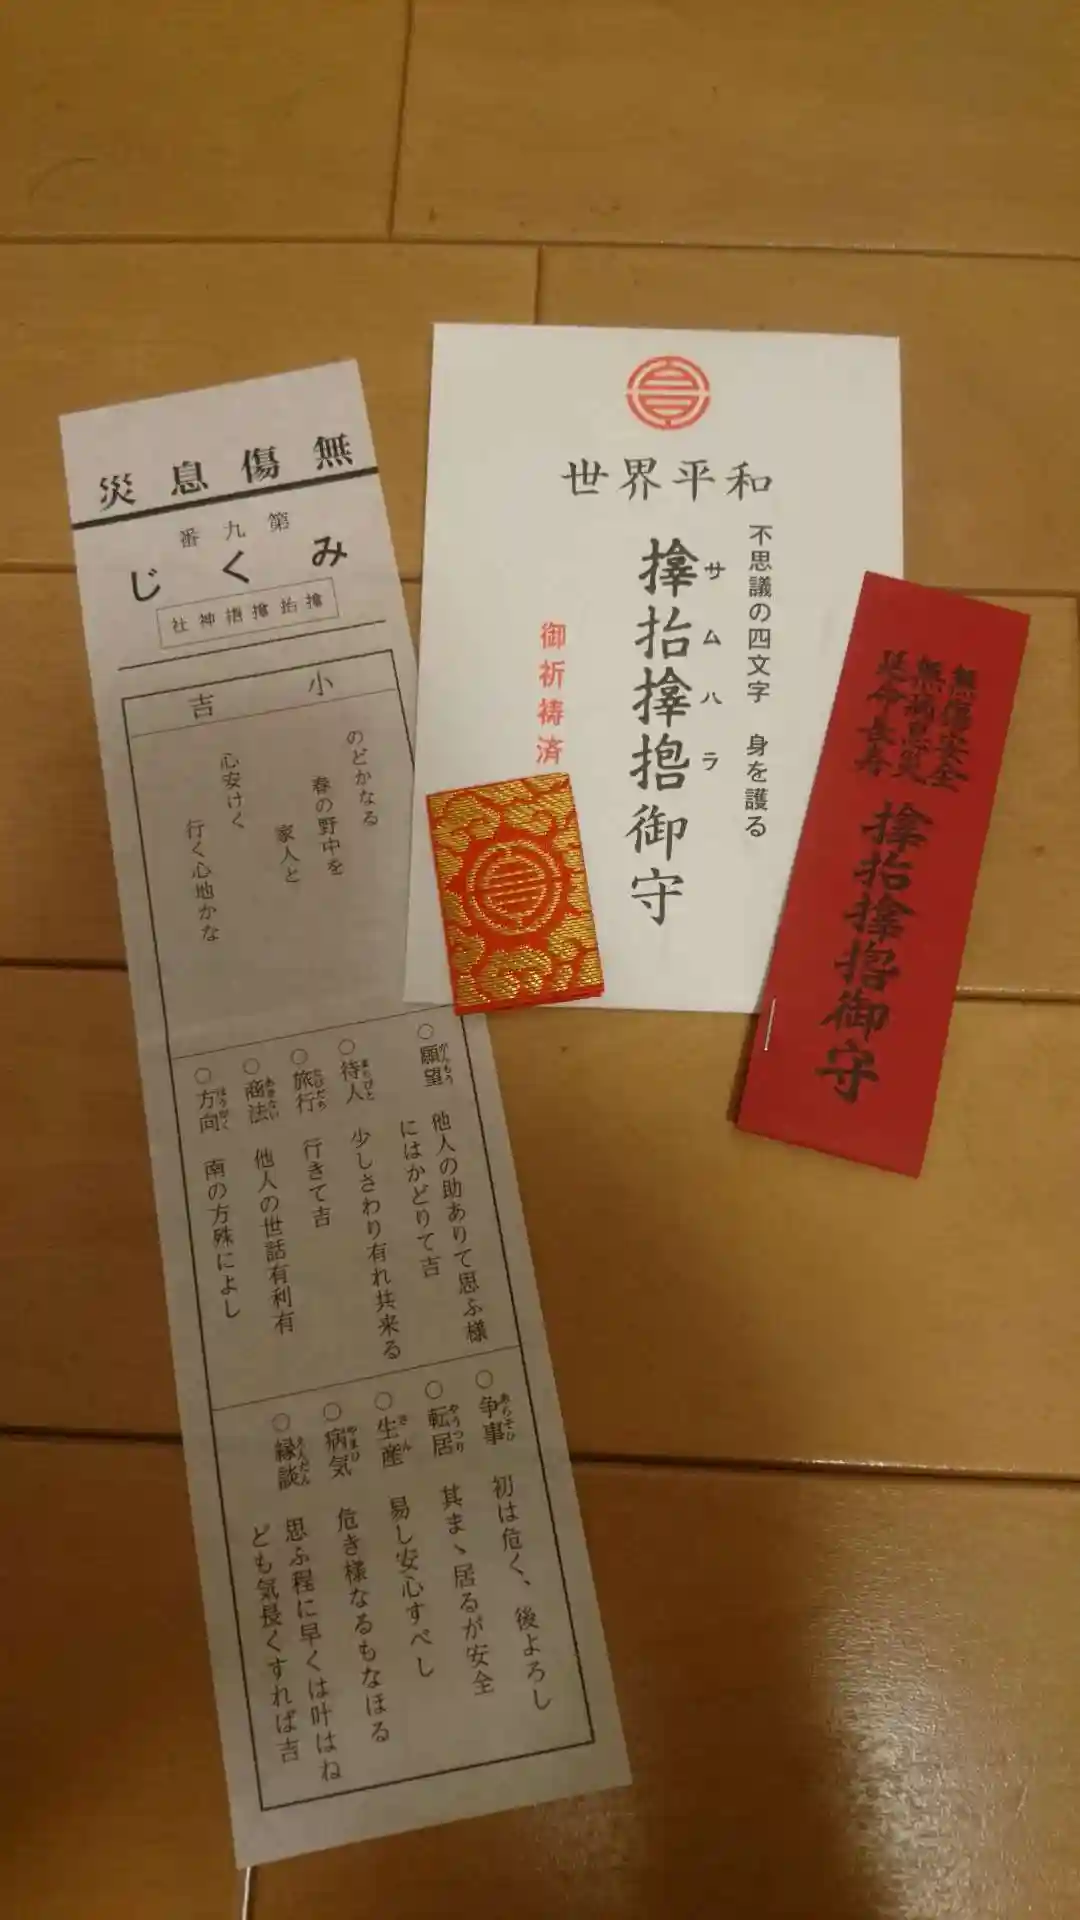 無傷息災
第九番
みくじ
小吉
のどかなる
春の野中を
家人と
心安けく
行く心地かな
○願望 他人の助ありて思ふ様
にはかどりて吉
○待人 少しさわり有れ共来る
○旅行 行きて吉
○商法 他人の世話有利有
○方向 南の方殊によし
○争事 初は危く、後よろし
○転居 其まゝ居るが安全
○生産 易し安心すべし
○病気 危き様なるもなほる
○縁談 思ふ程に早くは叶はね
ども気長くすれば吉
世界平和
不思議の四文字 身を護る
サムハラ
御守
御祈祷済
無傷安全
無病息災
延命長寿
御守